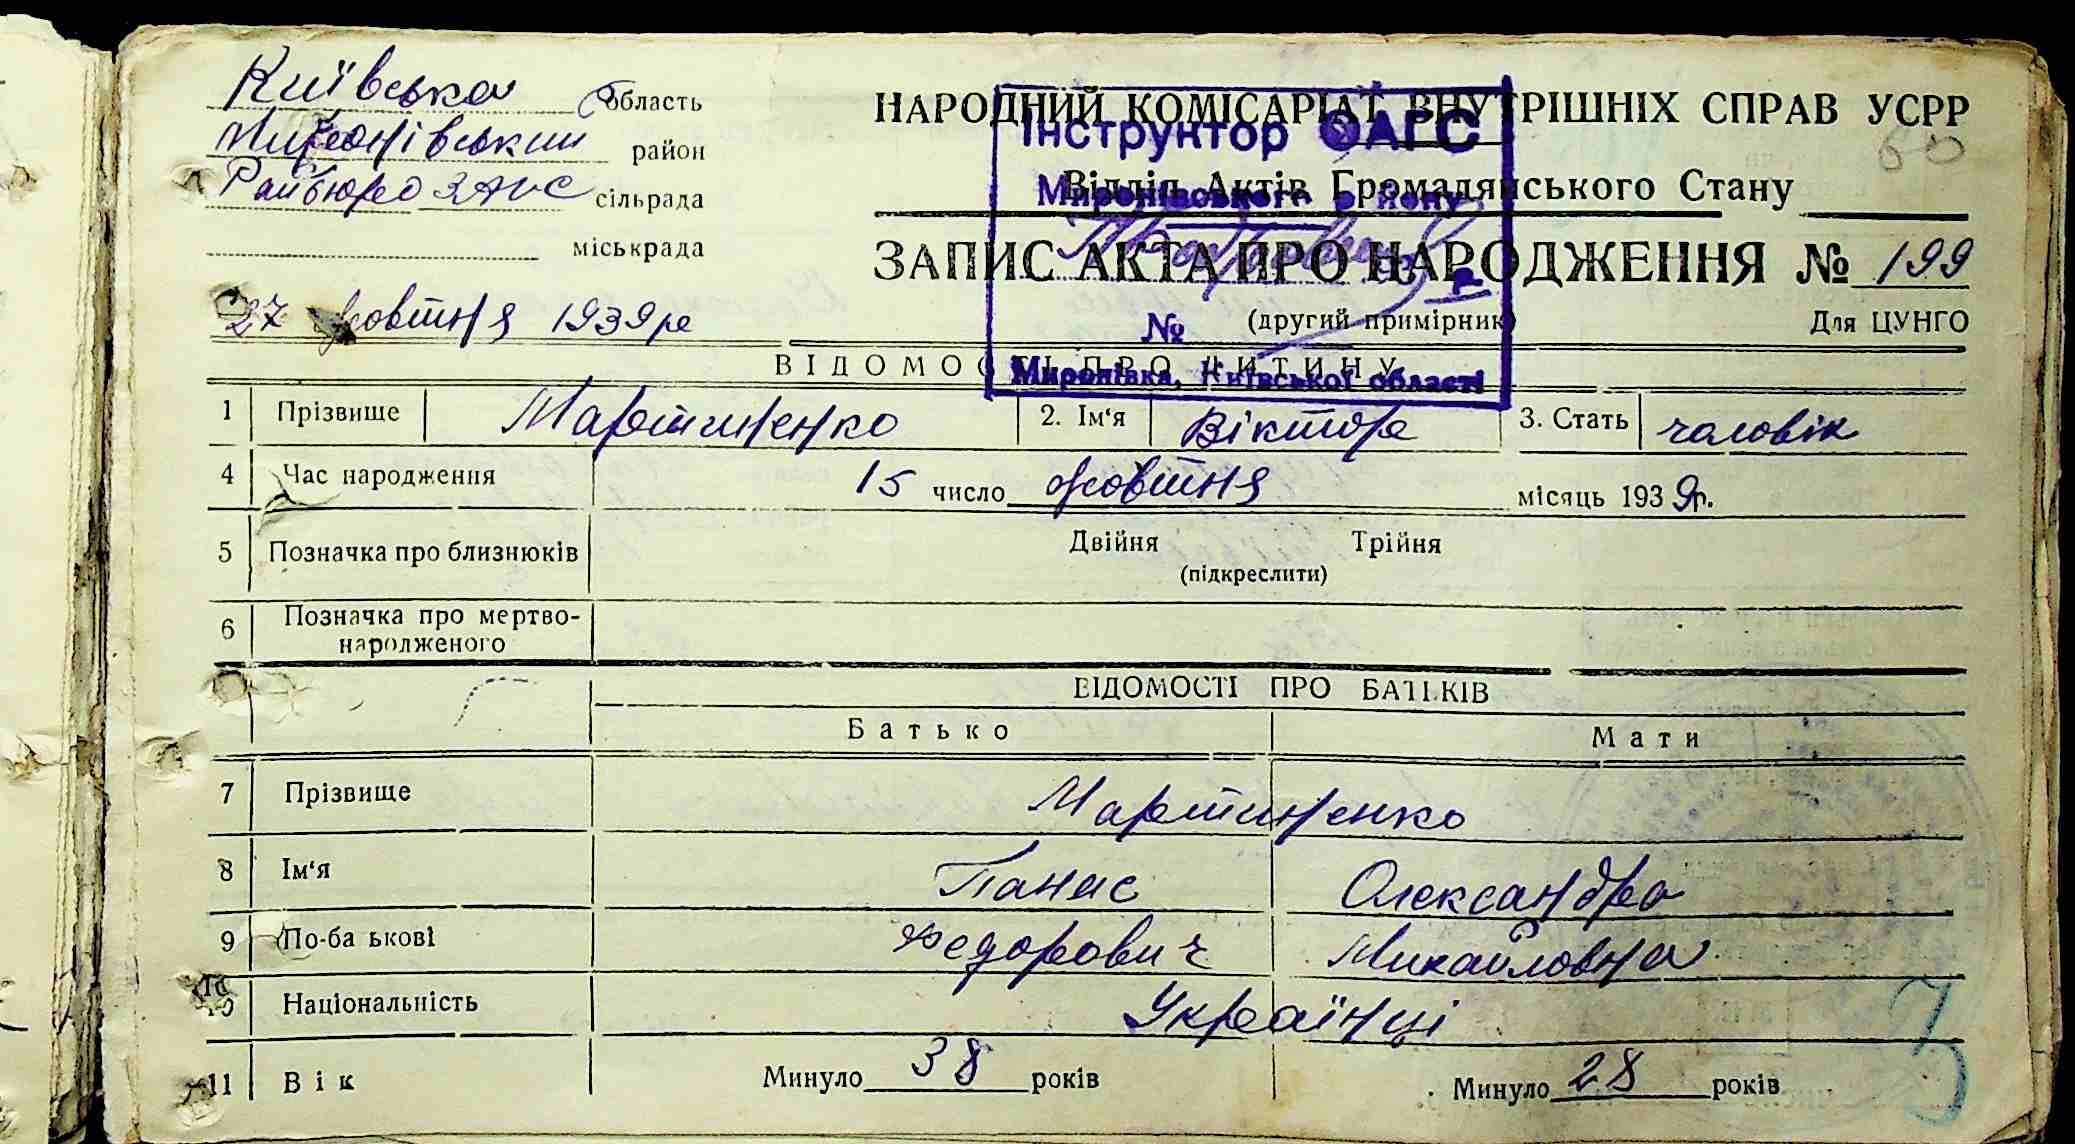 Київська область
Миронівський район
Райбюро ЗАГС сільрада
міськрада
27 жовтня 1939 ре
НАРОДНИЙ КОМІСАРІАТ ВНУТРІШНІХ СПРАВ УСРР
60
Відділ Актів Громадянського Стану
ЗАПИС АКТА ПРО НАРОДЖЕННЯ № 199
(другий примірник)
Для ЦУНГО
Інструктор ОАГС
Миронівського району
№
Миронівка, Київської області
ВІДОМОСТІ ПРО ДИТИНУ
1 Прізвище Мартиненко 2. Ім‘я Віктор 3. Стать чоловік
4 Час народження 15 число жовтня місяць 1939 р.
5 Позначка про близнюків Двійня Трійня
(підкреслити)
6 Позначка про мертво-
народженого
ВІДОМОСТІ ПРО БАТЬКІВ
Батько Мати
7 Прізвище Мартиненко
8 Ім‘я Панас Олександра
9 По-ба ькові Федорович Михайловна
10 Національність Українці
11 Вік Минуло 38 років Минуло 28 років